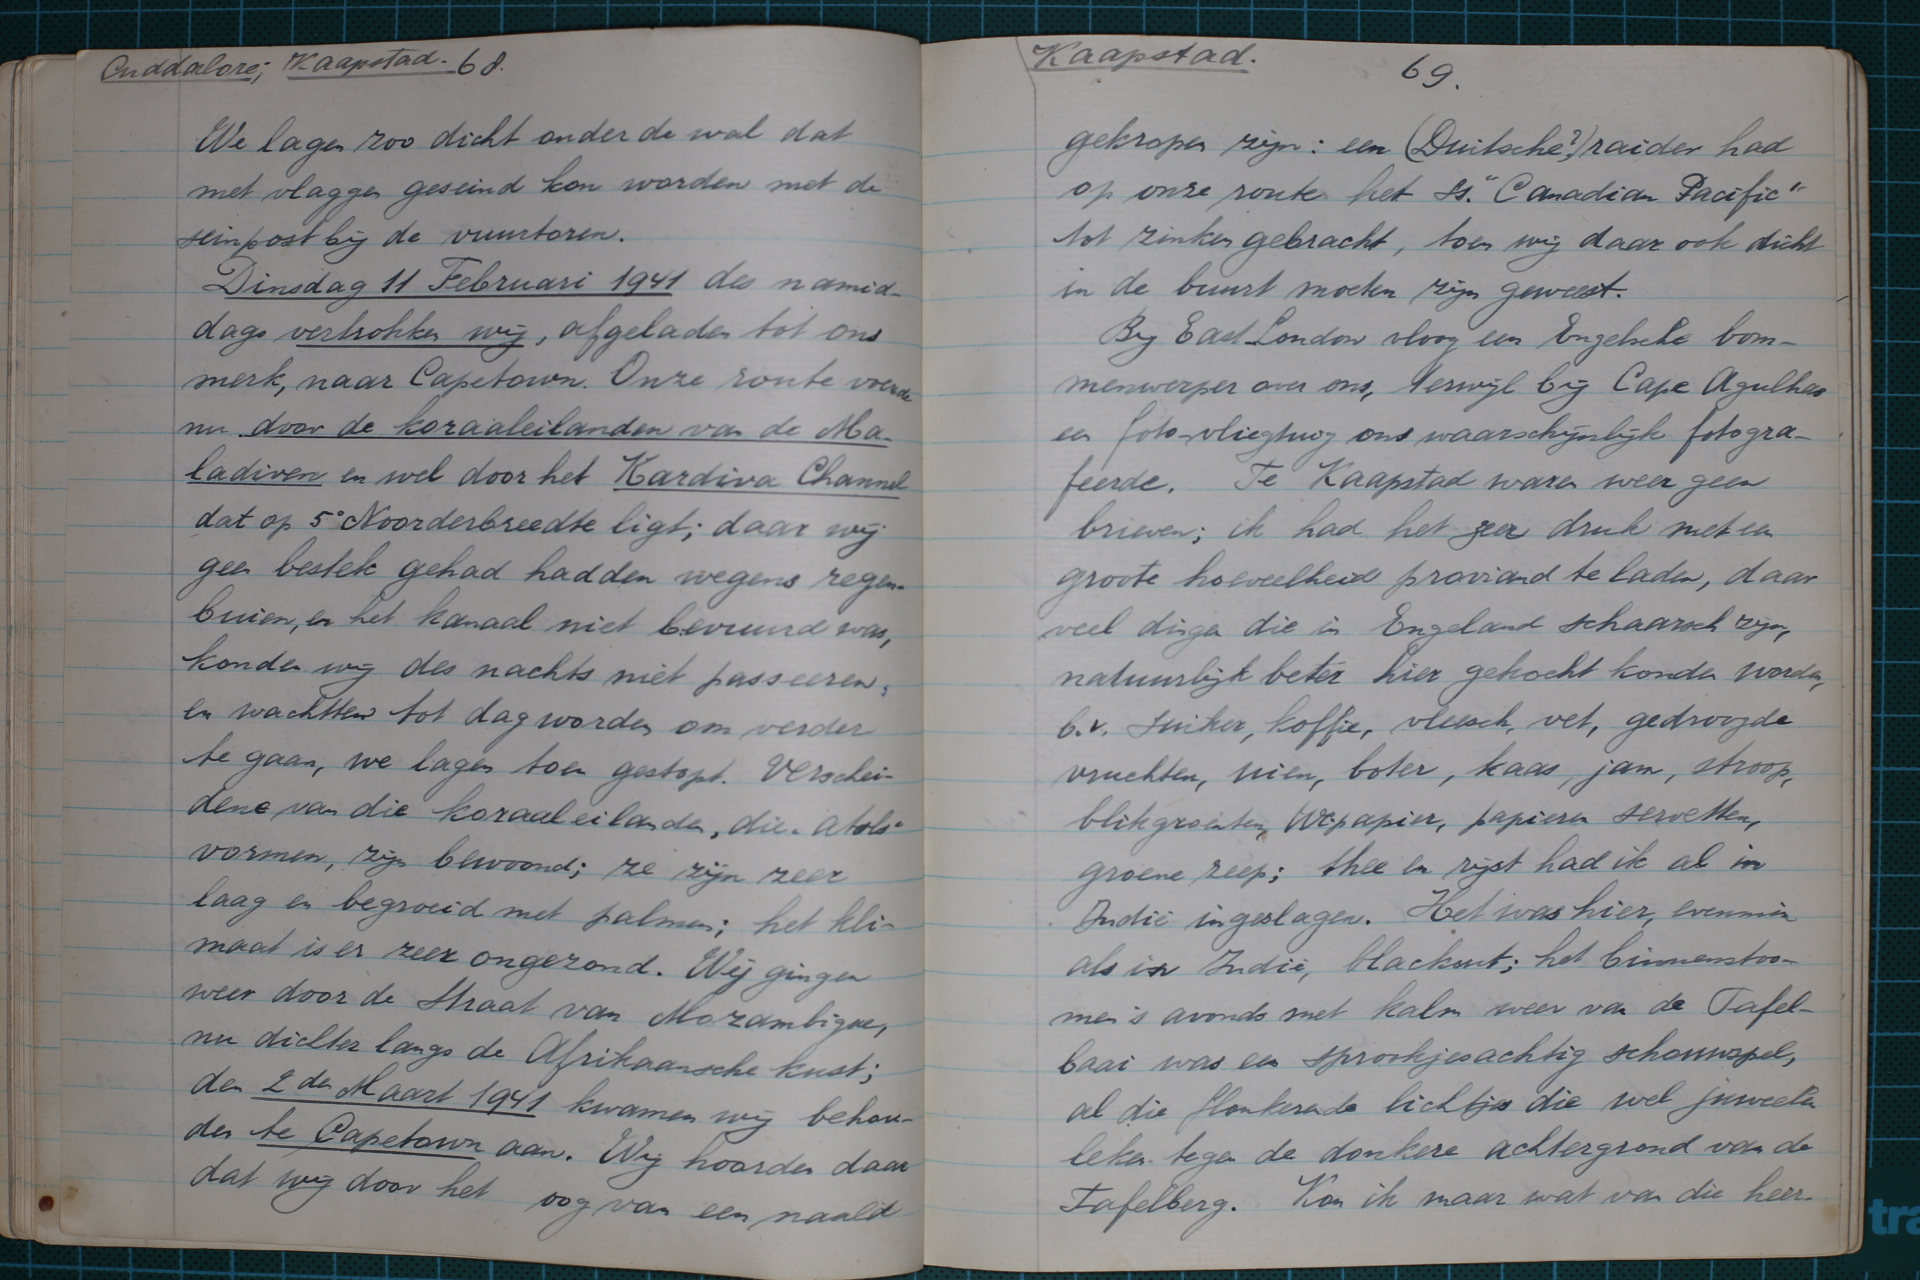 Cuddalore; Kaapstad. 68.
We lagen zoo dicht onder de wal dat
met vlaggen geseind kon worden met de
seinpost bij de vuurtoren.
Dinsdag 11 Februari 1941 des namid-
dags vertrokken wij, afgeladen tot ons
merk, naar Capetown. Onze route voerde
nu door de koraaleilanden van de Ma-
ladiven en wel door het Kardiva Channel
dat op 5° Noorderbreedte ligt; daar wij
geen bestek gehad hadden wegens regen-
buien, en het kanaal niet bevuurd was,
konden wij des nachts niet passeeren,
en wachtten tot dagworden om verder
te gaan, we lagen toen gestopt. Verschei-
dene van die koraaleilanden, die "atols"
vormen, zijn bewoond; ze zijn zeer
laag en begroeid met palmen; het kli-
maat is er zeer ongezond. Wij gingen
weer door de Straat van Mozambique,
nu dichter langs de Afrikaansche kust;
den 2den Maart 1941 kwamen wij behou-
den te Capetown aan. Wij hoorden daar
dat wij door het oog van een naald
Kaapstad.
69.
gekropen zijn: een (Duitsche?) raider had
op onze route het ss. "Canadian Pacific"
tot zinken gebracht, toen wij daar ook dicht
in de buurt moeten zijn geweest.
Bij East London vloog een Engelsche bom-
menwerper over ons, terwijl bij Cape Agulhas
een foto-vliegtuig ons waarschijnlijk fotogra-
feerde. Te Kaapstad waren weer geen
brieven; ik had het zeer druk met een
groote hoeveelheid proviand te laden, daar
veel dingen die in Engeland schaarsch zijn,
natuurlijk beter hier gekocht konden worden,
b.v. suiker, koffie, vleesch, vet, gedroogde
vruchten, uien, boter, kaas, jam, stroop,
blikgroenten, WCpapier, papieren servetten,
groene zeep; thee en rijst had ik al in
Indië ingeslagen. Het was hier, evenmin
als in Indië, blackout; het binnenstoo-
men 's avonds met kalm weer van de Tafel-
baai was een sprookjesachtig schouwspel,
al die flonkerende lichtjes die wel juweelen
leken tegen de donkere achtergrond van de
Tafelberg. Kon ik maar wat van die heer-